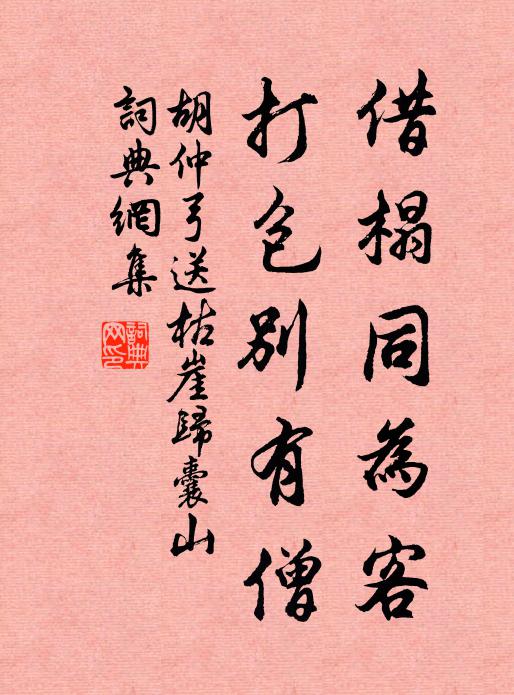 借榻同為客
打包別有僧
胡仲弓送枯崖歸囊山
詞典網集
詞典網印